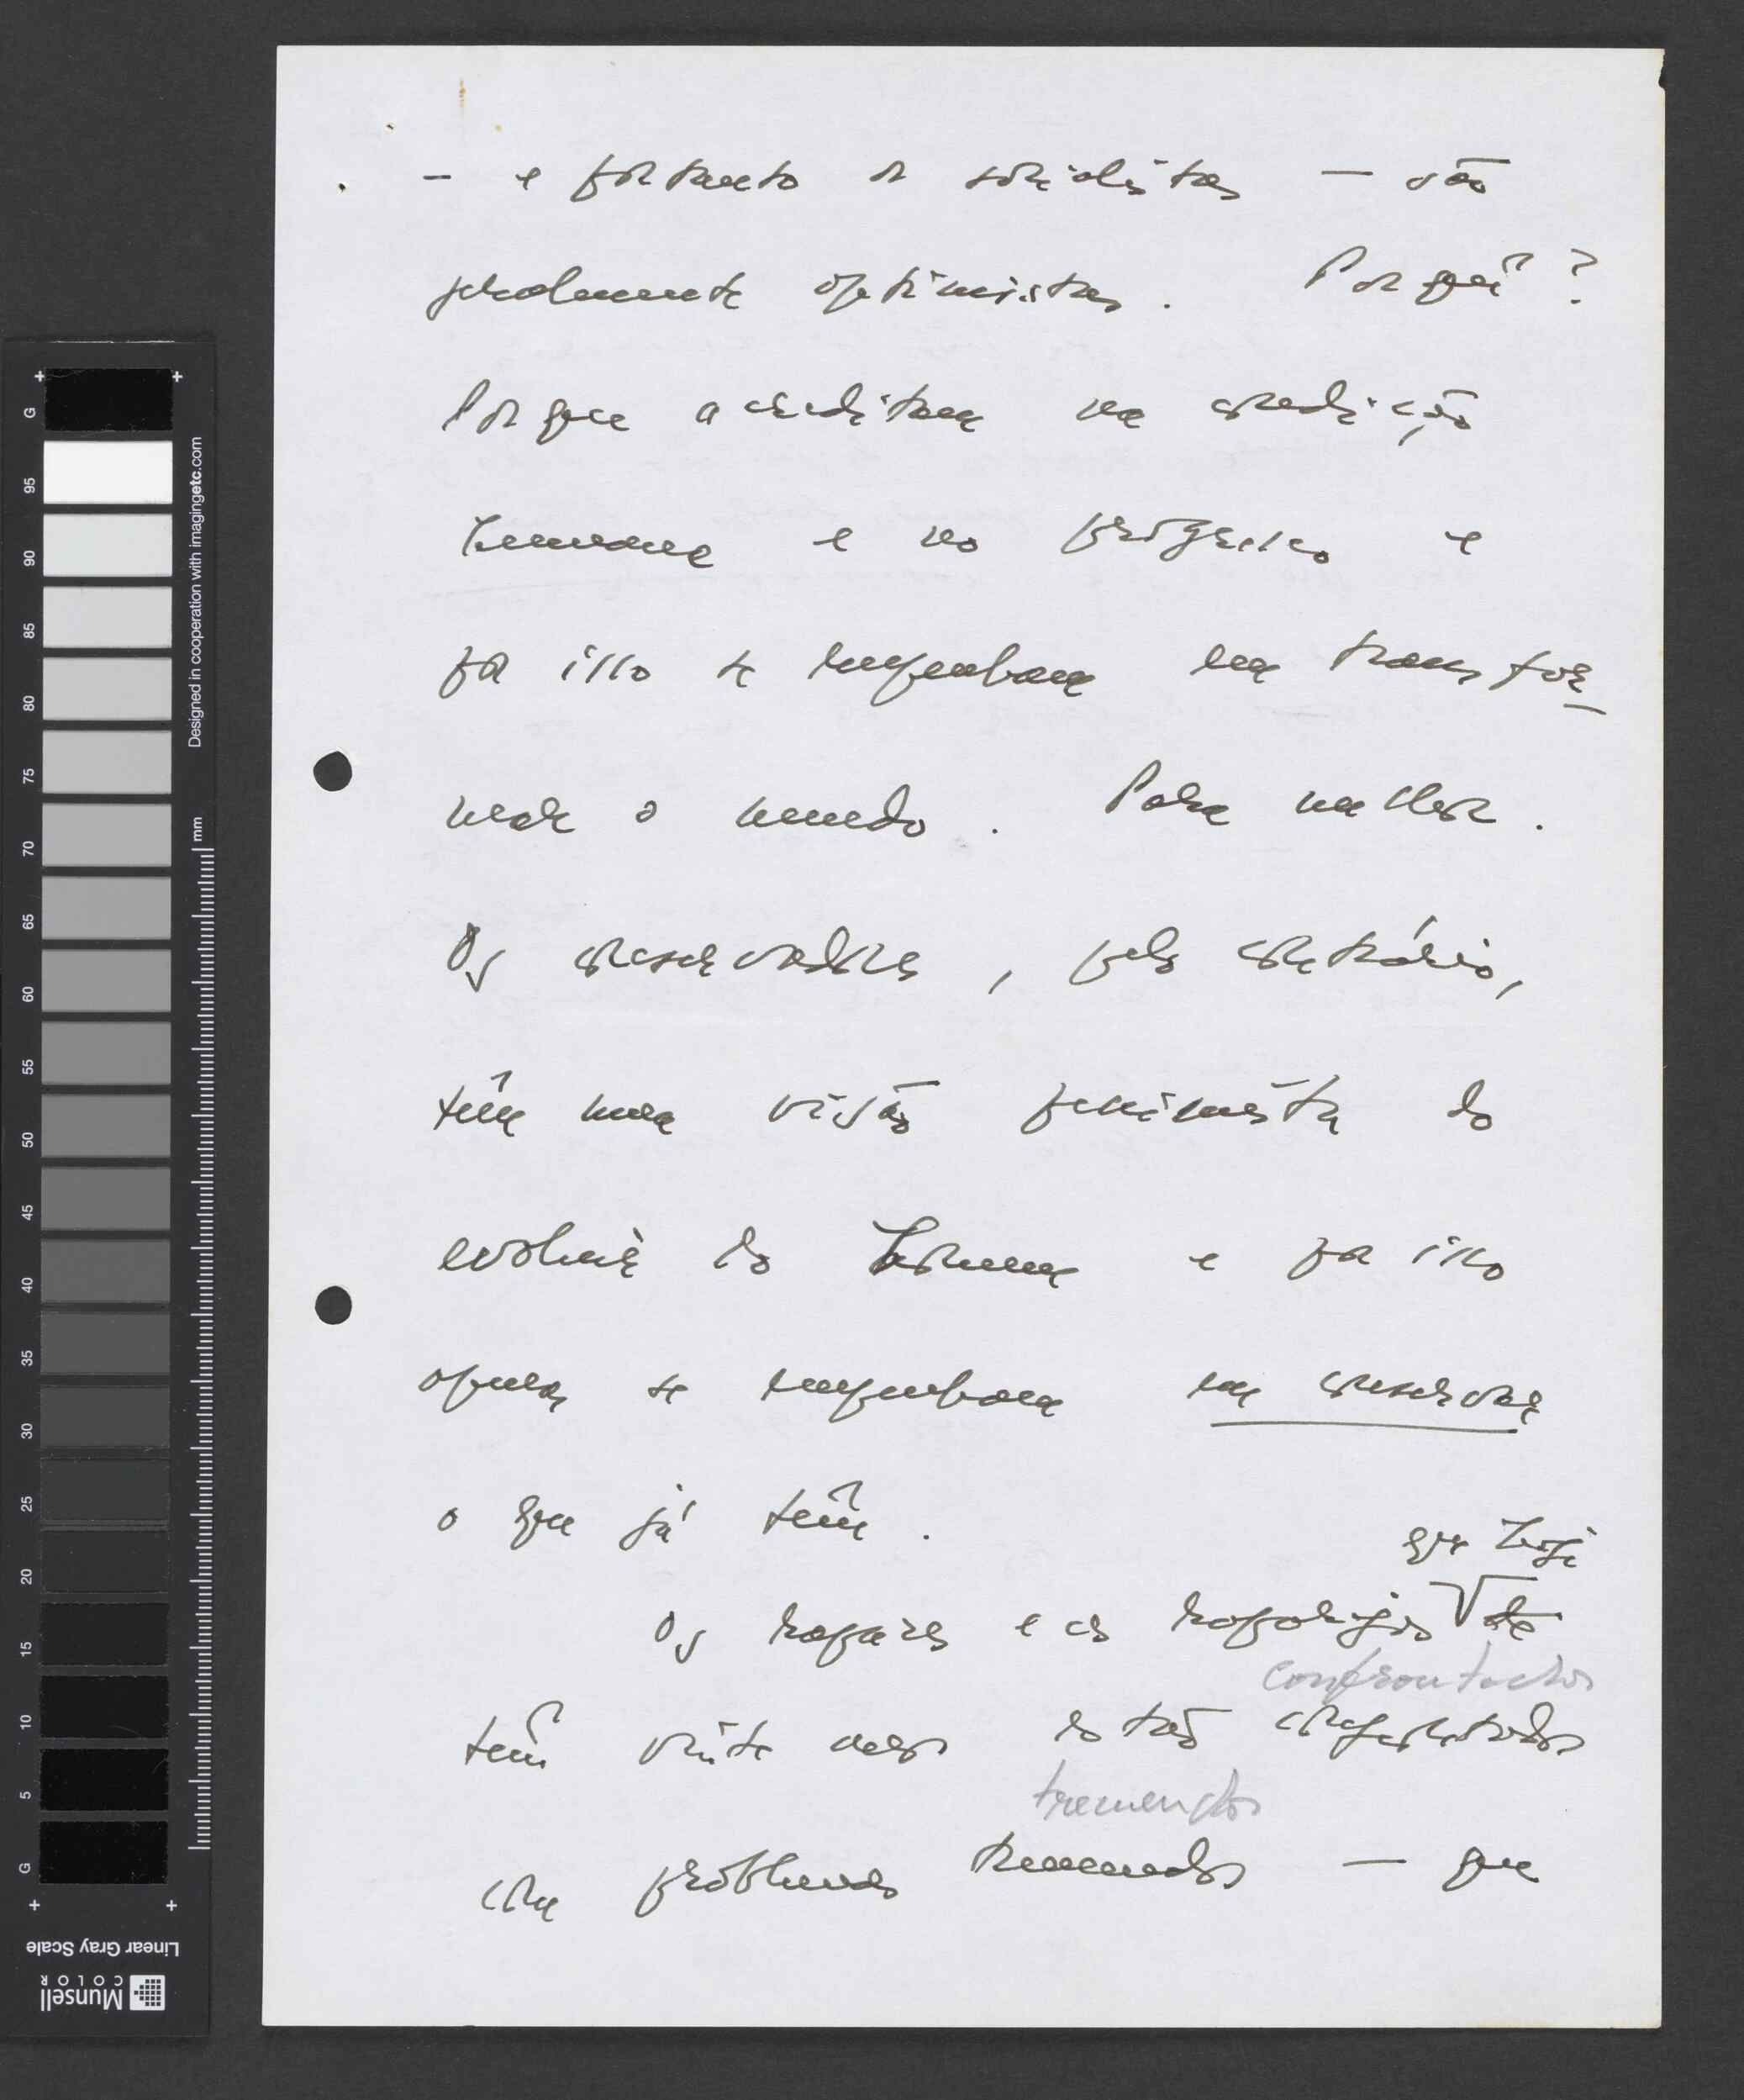 - e portanto os socialistas - são
geralmente optimistas. Porquê?
Porque acreditam na condição
humana e no progresso e
por isso se empenham em transfor
mar o mundo. Para melhor.
Os conservadores, pelo contrário,
têm uma visão pessimista do
do homem e por isso
apenas se empenham em conservar
o que já têm.
que hoje
Os rapazes e as raparigas
confrontados
têm vinte anos estão confrontados
tremendos
com problemas tremendos - que
G
95
90
85
80
75
70
65
60
55
50
45
40
35
30
25
20
15
10
5
G
Designed in cooperation with imagingetc.com
mm
Linear Gray Scale
Munsell
COLOR